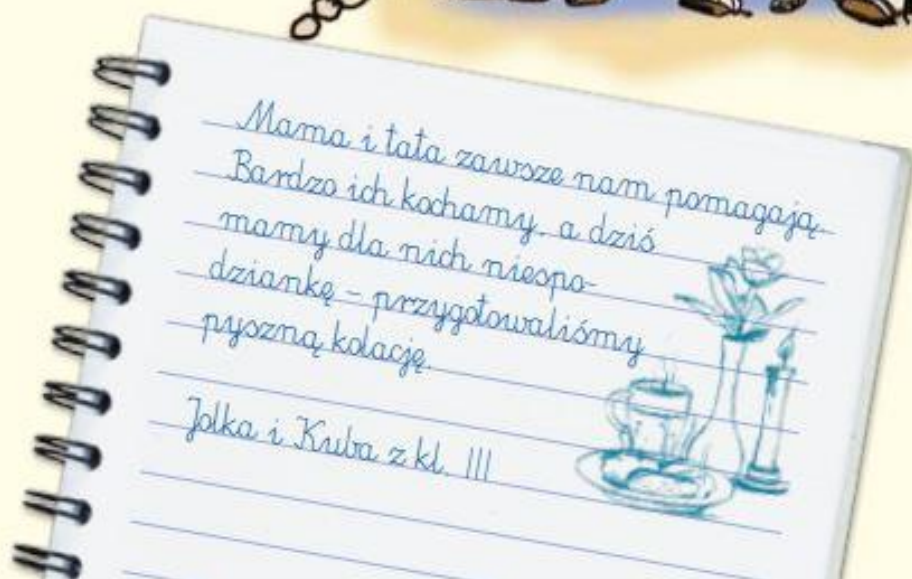 Mama i tata zawsze nam pomagają.
Bardzo ich kochamy, a dziś
mamy dla nich niespo-
dziankę – przygotowaliśmy
pyszną kolację.
Jolka i Kuba z kl. III